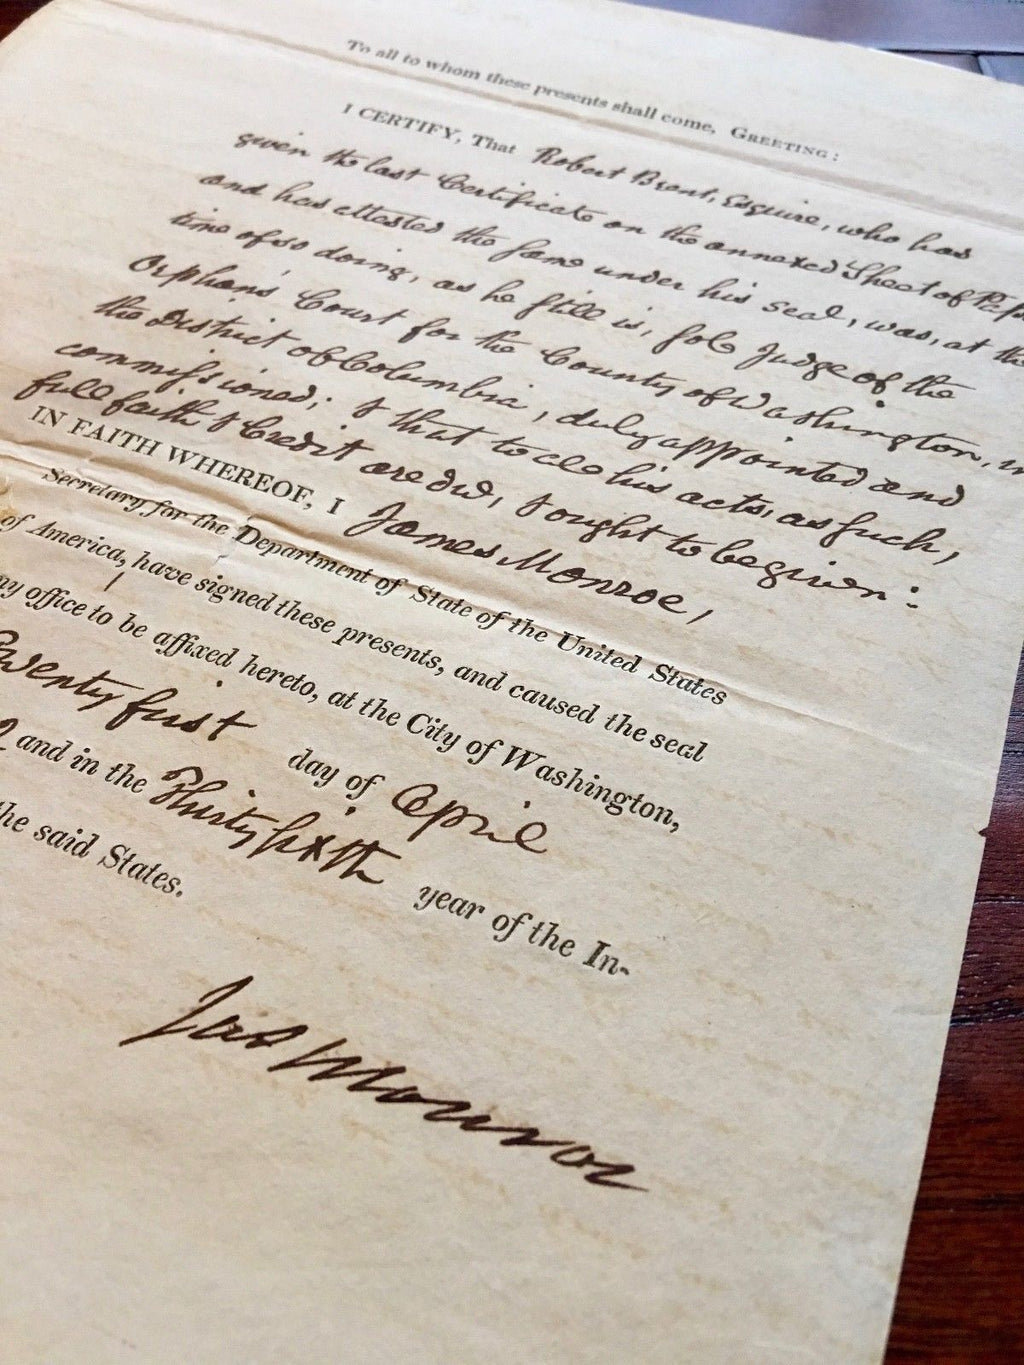 To all to whom these presents shall come, GREETING:
I CERTIFY, That Robert Brent, Esquire, who has
given the last Certificate on the annexed Sheet of
and has attested the same under his seal, was, at the
time of so doing, as he still is, sole Judge of the
Orphans' Court for the County of Washington, in
the District of Columbia, duly appointed and
commissioned; & that to all his acts, as such,
full faith & Credit are due, & ought to be given:
IN FAITH WHEREOF, I James Monroe,
Secretary for the Department of State of the United States
of America, have signed these presents, and caused the seal
my office to be affixed hereto, at the City of Washington,
Twenty first day of April
and in the Thirty sixth year of the In-
the said States.
Jas Monroe